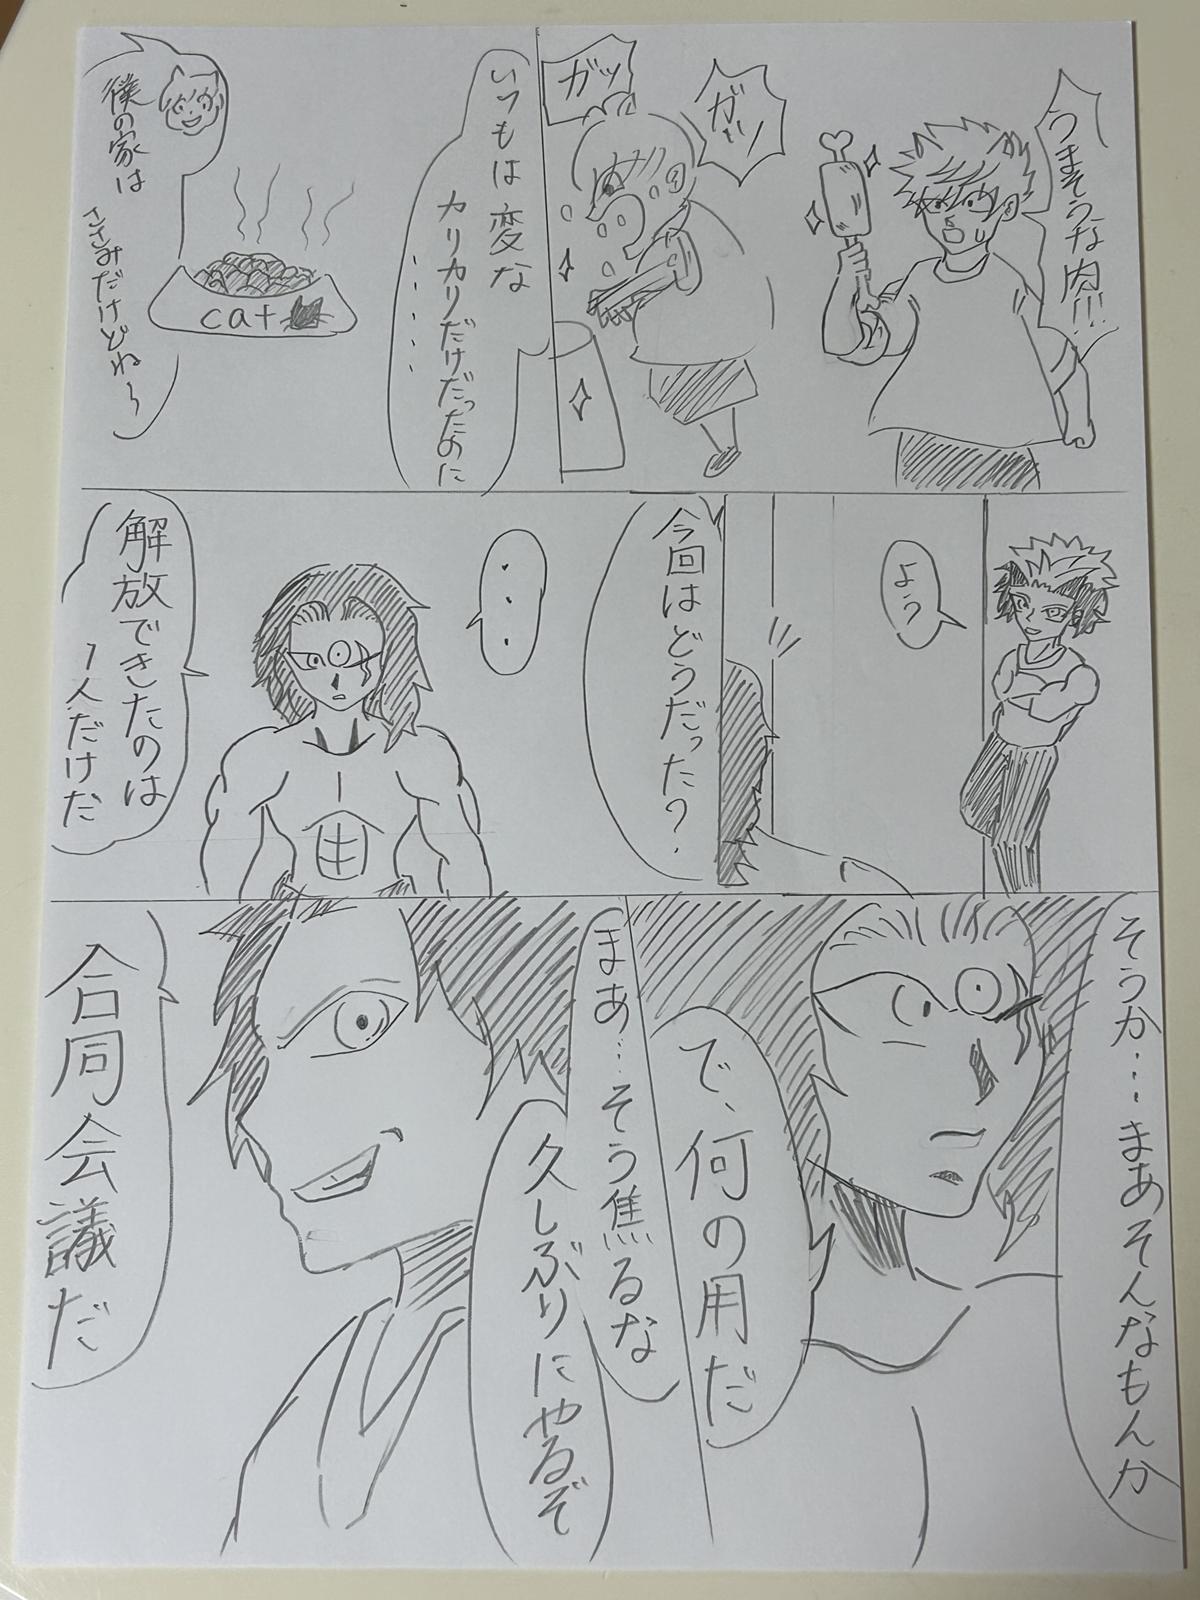 うまそうな肉!!!
ガッ
ガッ
いつもは変な
カリカリだけだったのに
・・・・・・
cat
僕の家は
ささみだけどね～
よう
今回はどうだった?
・・・
解放できたのは
1人だけだ
そうか…まあそんなもんか
で、何の用だ
まあ…そう焦るな
久しぶりにやるぞ
合同会議だ